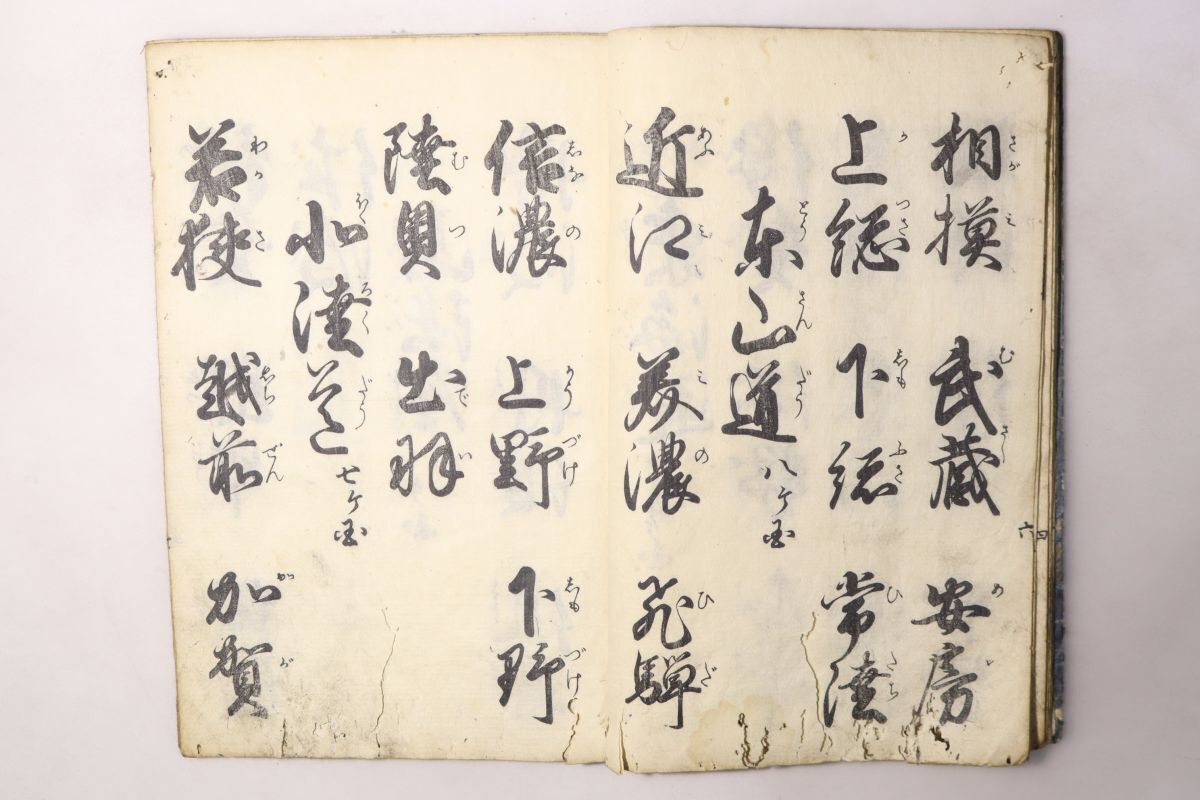 相模 武蔵 安房
上総 下総 常陸
東山道 八ケ国
近江 美濃 飛騨
信濃 上野 下野
陸奥 出羽
北陸道 七ケ国
若狭 越前 加賀